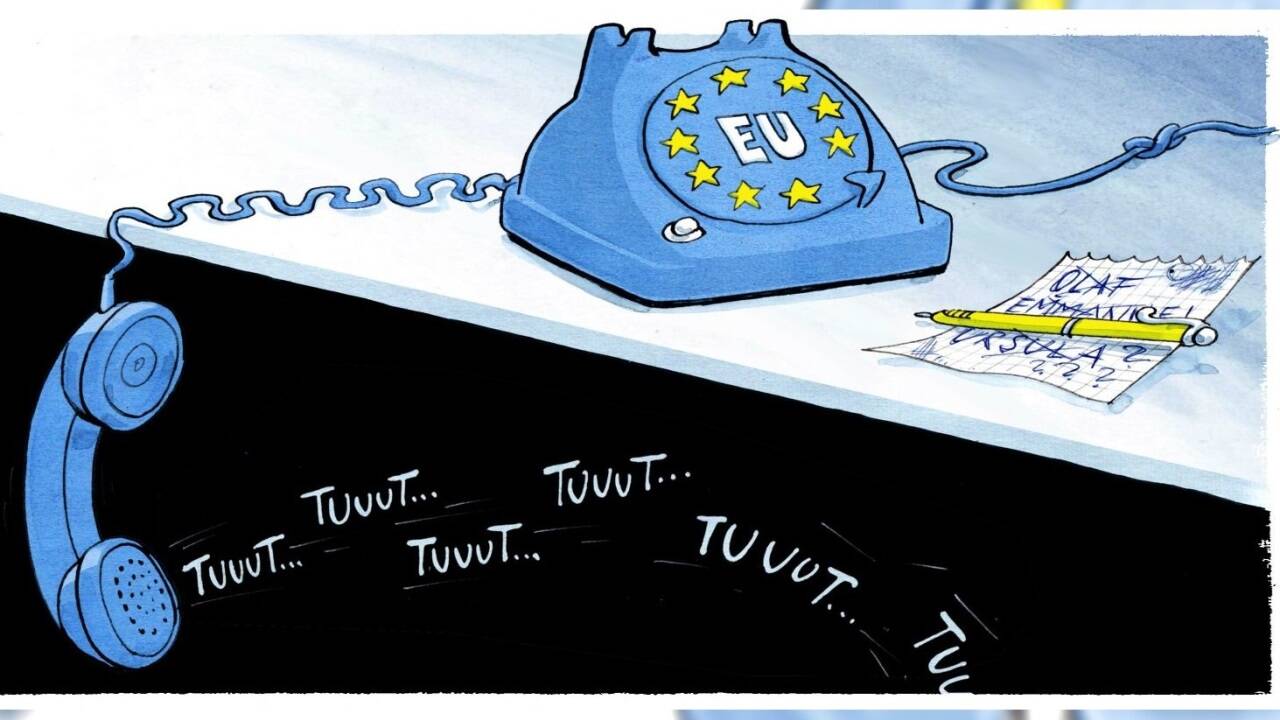 EU
OLAF
EMMANUEL
URSULA?
? ? ?
TUUUT...
TUUUT...
TUUUT...
TUUUT...
TUUUT...
TUU